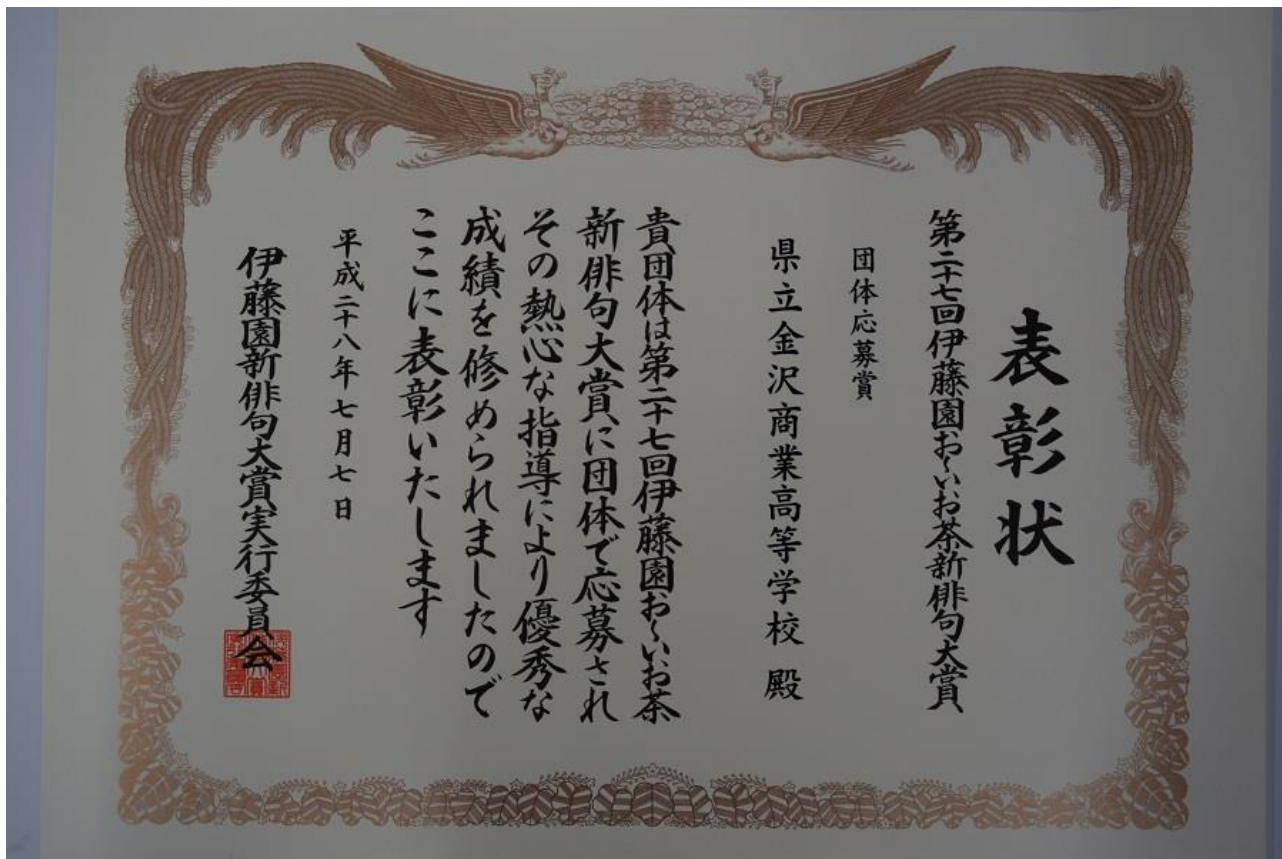 表彰状
第二十七回伊藤園お〜いお茶新俳句大賞
団体応募賞
県立金沢商業高等学校 殿
貴団体は第二十七回伊藤園お〜いお茶
新俳句大賞に団体で応募され
その熱心な指導により優秀な
成績を修められましたので
ここに表彰いたします
平成二十八年七月七日
伊藤園新俳句大賞実行委員会